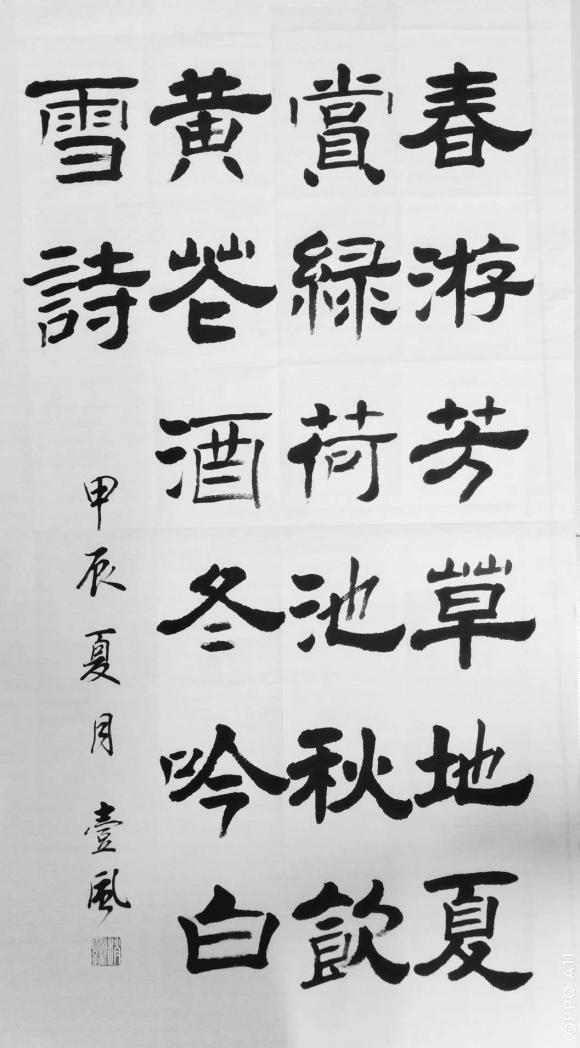 春游芳草地夏
賞綠荷池秋飲
黃花酒冬吟白
雪詩
甲辰夏月 壹風
OPPO A11